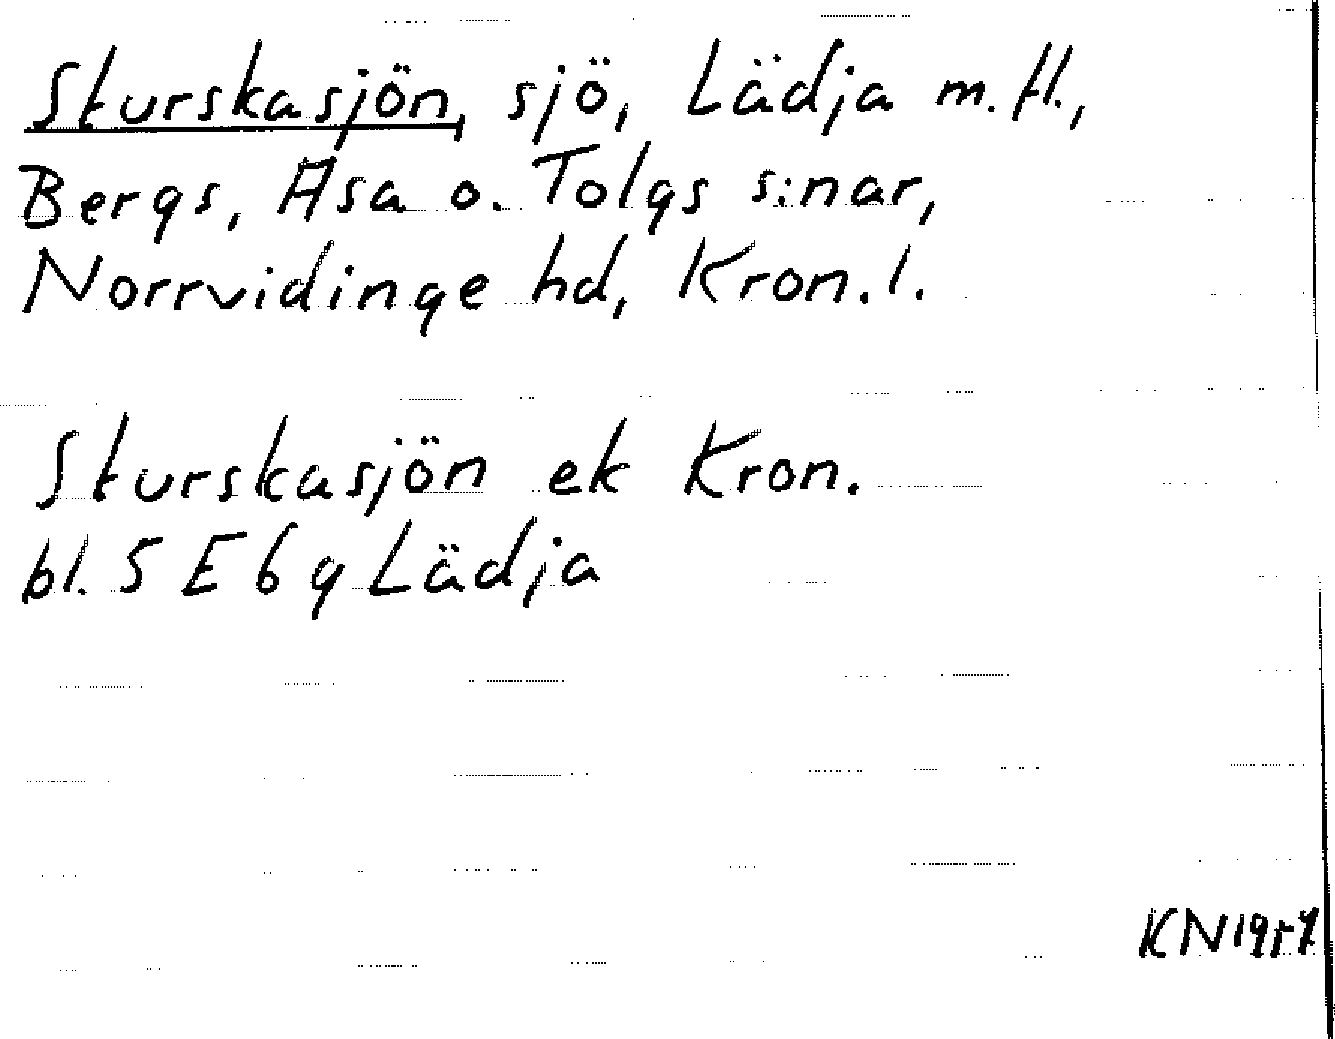 Sturskasjön, sjö, Lädja m. fl.,
Bergs, Asa o. Tolgs s:nar,
Norrvidinge hd, Kron. l.
Sturskasjön ek Kron.
bl. 5 E 6 g Lädja
KN 1957